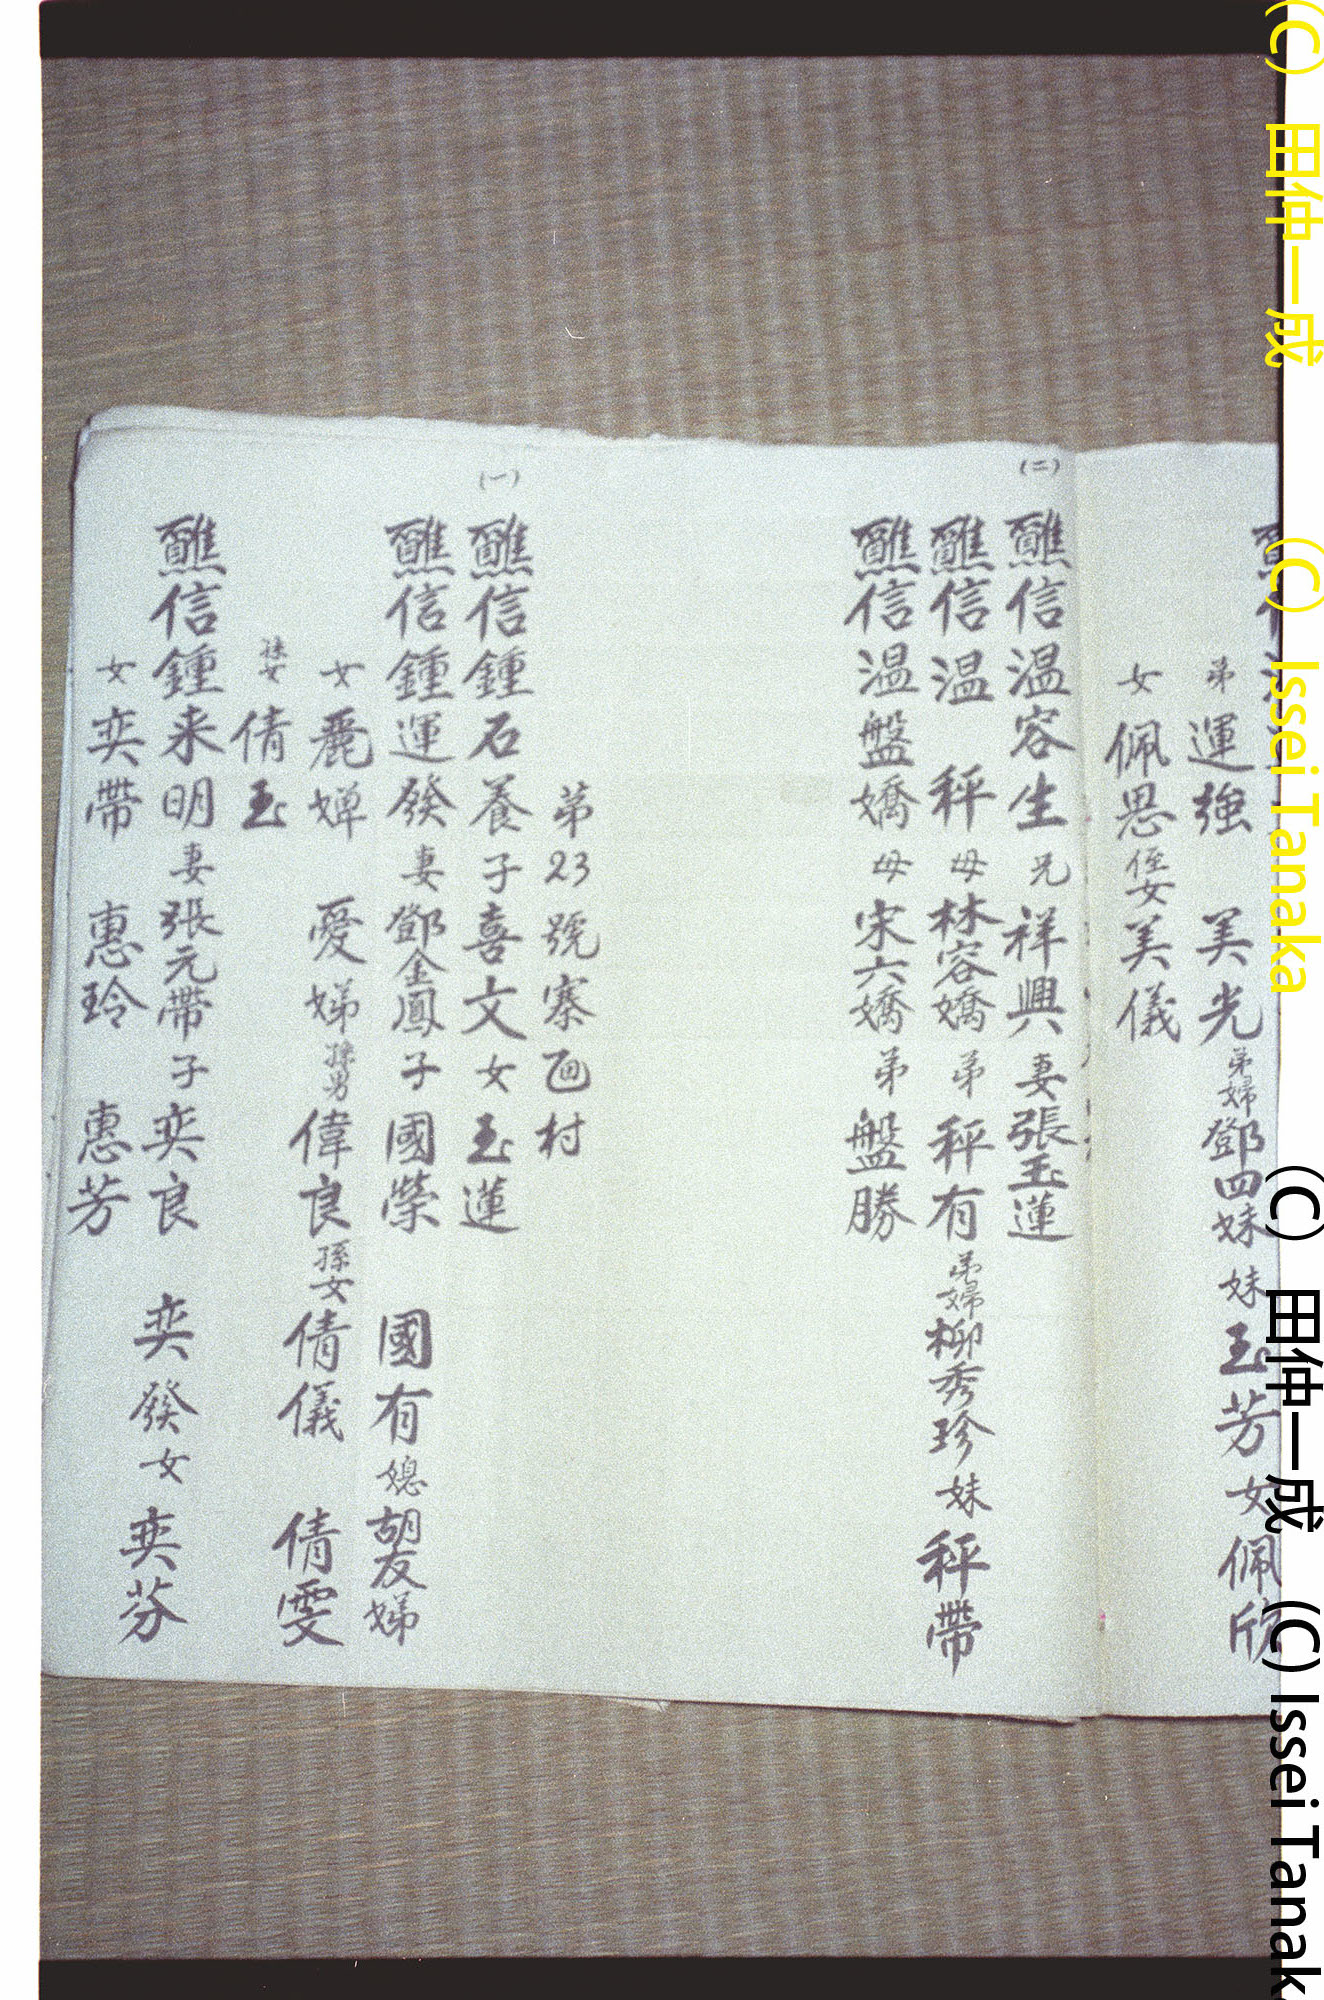 弟運強 美光弟婦鄧四妹妹玉芳女佩欣
女佩恩侄女美儀
(二)
醮信温容生兄祥興妻張玉蓮
醮信温 秤母林容嬌弟秤有弟婦柳秀珍妹秤帶
醮信温盤嬌母宋六嬌弟盤勝
第23號寨乪村
(一)
醮信鍾石養子喜文女玉蓮
醮信鍾運發妻鄧金鳳子國榮 國有媳胡友娣
女麗婵 愛娣孫男偉良孫女倩儀 倩雯
孫女倩玉
醮信鍾来明妻張元帶子奕良 奕發女奕芬
女奕帶 惠玲 惠芳
(C) 田仲一成 (C) Issei Tanaka
(C) 田仲一成 (C) Issei Tanak